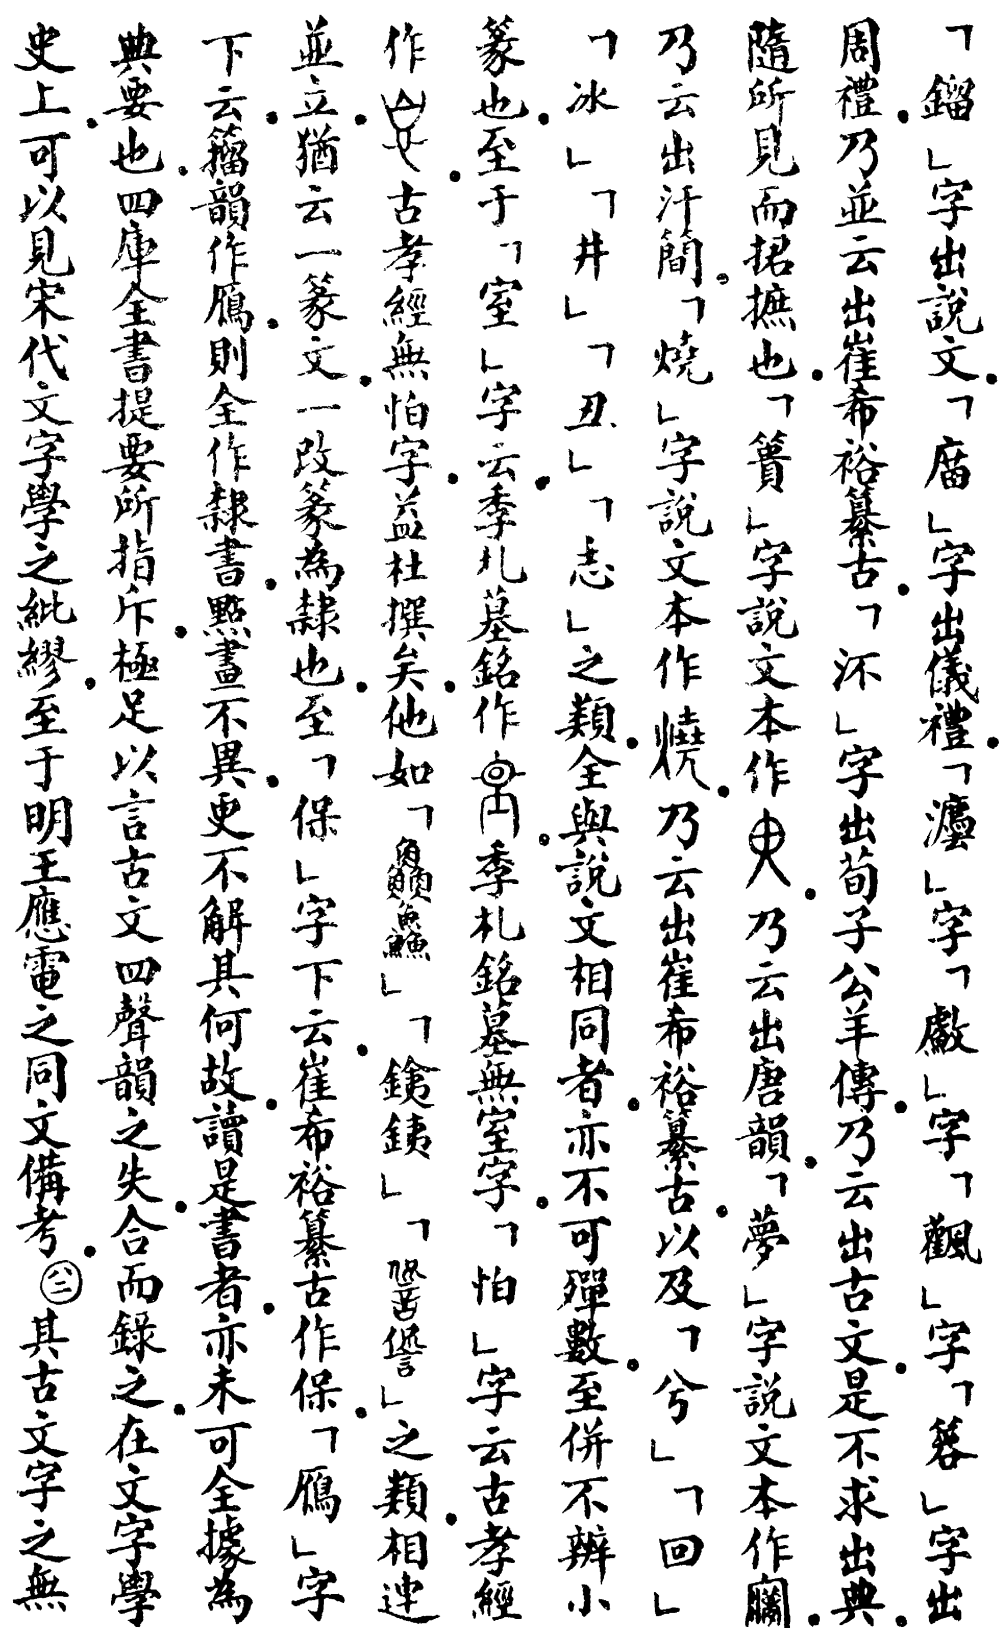 「鎦」字出說文。「庿」字出儀禮「灋」字「𢿢」字「飌」字「簭」字出
周禮。乃並云出崔希裕纂古。「沶」字出荀子公羊傳。乃云出古文。是不求出典。
隨所見而捃摭也。「簣」字說文本作。乃云出唐韻。「夢」字說文本作㝱。
乃云出汗簡。「燒」字說文本作燒。乃云出崔希裕纂古。以及「兮」「回」
「冰」「井」「丑」「志」之類。全與說文相同者。亦不可殫數。至併不辨小
篆也。至于「室」字云。季札墓銘作。季札銘墓無室字。「怕」字云古孝經
作。古孝經無怕字。益杜撰矣。他如「鱻」「銕銕」「」之類。相連
並立。猶云一篆文。一改篆為隸也。至「保」字下云。崔希裕纂古作保。「鴈」字
下云。籀韻作鴈。則全作隸書。點畫不異。更不解其何故。讀是書者。亦未可全據為
典要也。四庫全書提要所指斥。極足以言古文四聲韻之失。合而錄之。在文字學
史上。可以見宋代文字學之紕繆。至于明王應電之同文備考。㊁其古文字之無